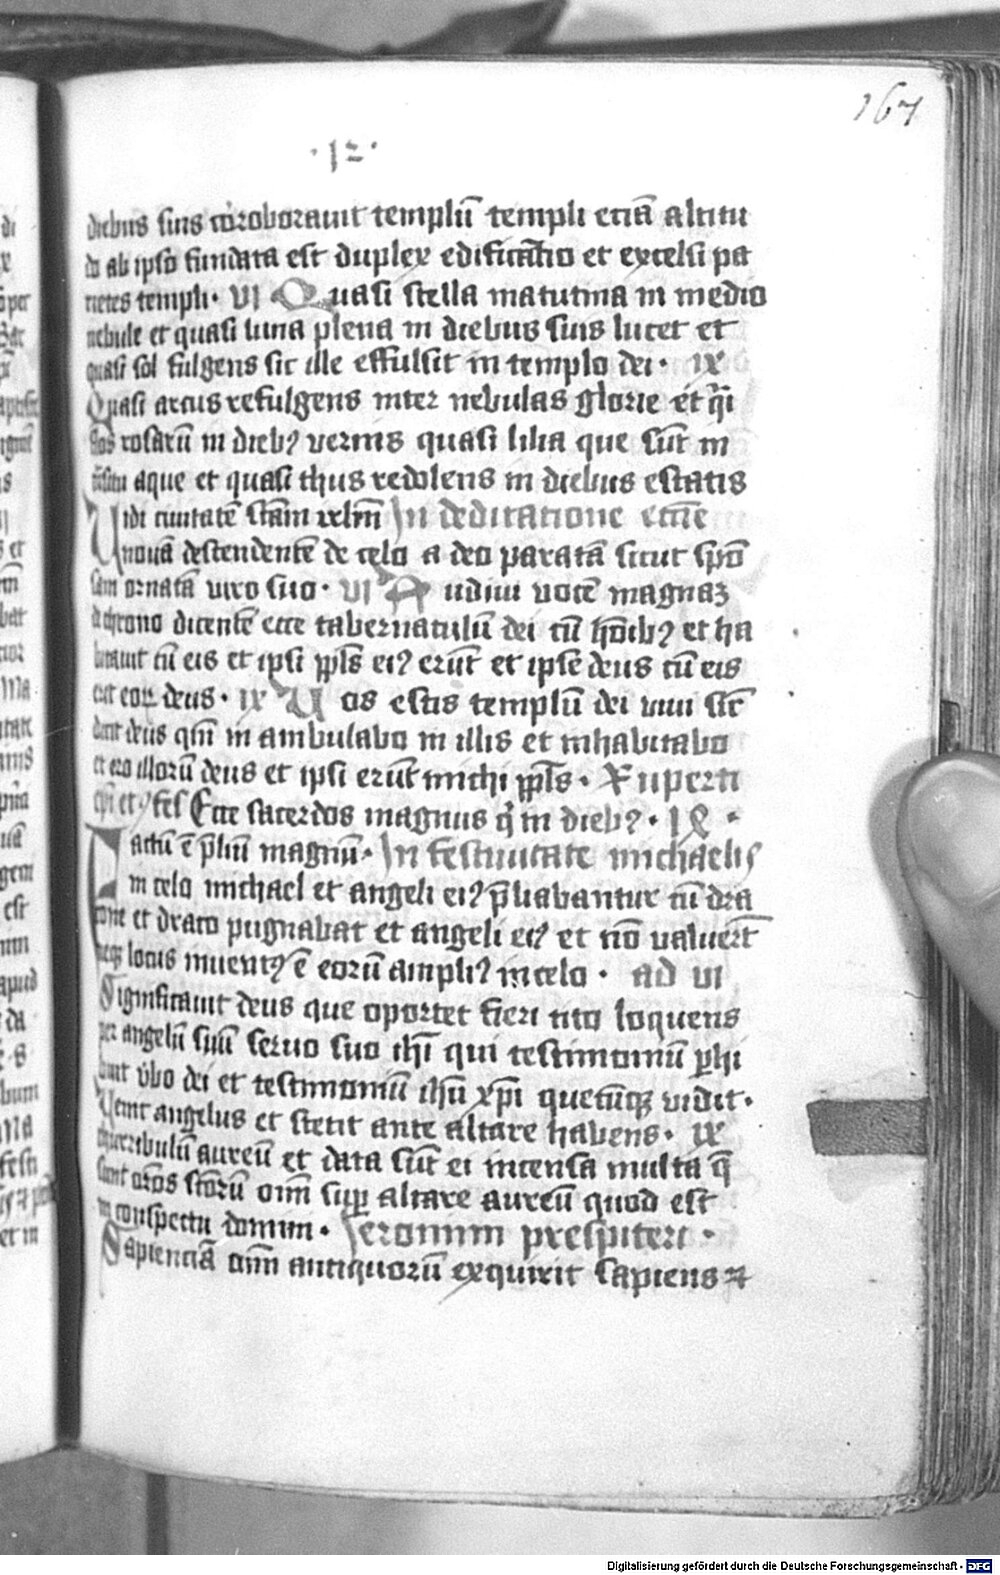 167
·12·
diebus suis corroborauit templū templi eciā altitu
do ab ipso fundata est duplex edificatio et excelsi pa
rietes templi · VI Quasi stella matutina in medio
nebule et quasi luna plena in diebus suis lucet et
quasi sol fulgens sic ille effulsit in templo dei · ix
Quasi arcus refulgens inter nebulas glorie et q̄si
flos rosarū in dieb⁹ vernis quasi lilia que sūt in
aque et quasi thus redolens in diebus estatis
Uidi ciuitatē sc̄am irlm̄ In dedicatione ecc̄ie
nouā descendentē de celo a deo paratā sicut spō
sam ornatā viro suo · VI Audiui vocē magnaꝫ
de throno dicentē ecce tabernaculū dei cū hōib⁹ et ha
bitauit cū eis et ipsi ppl̄s ei⁹ erūt et ipse deus cū eis
erit eoꝝ deus · ix Uos estis templū dei viui sic̄
dicit deus qm̄ in ambulabo in illis et inhabitabo
et ero illorū deus et ipsi erūt michi ppl̄s · Ruperti
ep̄i et Ecce sacerdos magnus q̄ in dieb⁹ ·
Factū ē p̄liū magnū · In festiuitate michaelis
in celo michael et angeli ei⁹ p̄liabantur cū dra
cone et draco pugnabat et angeli ei⁹ et nō valuer̄t
neqꝫ locus inuent⁹ ē eorū ampli⁹ in celo · ad VI
Significauit deus que oportet fieri cito loquens
per angelū suū seruo suo ioh̄i qui testimoniū ꝑhi
buit v̄bo dei et testimoniū ih̄u xp̄i quecūqꝫ vidit ·
Uenit angelus et stetit ante altare habens · ix
thuribulū aureū et data sūt ei incensa multa q̄
sunt orōes sc̄orū oīm suꝑ altare aureū quod est
in conspectu domini · Jeronimi presbiteri ·
Sapienciā oīm antiquorū exquirit sapiens ⁊
Digitalisierung gefördert durch die Deutsche Forschungsgemeinschaft - DFG